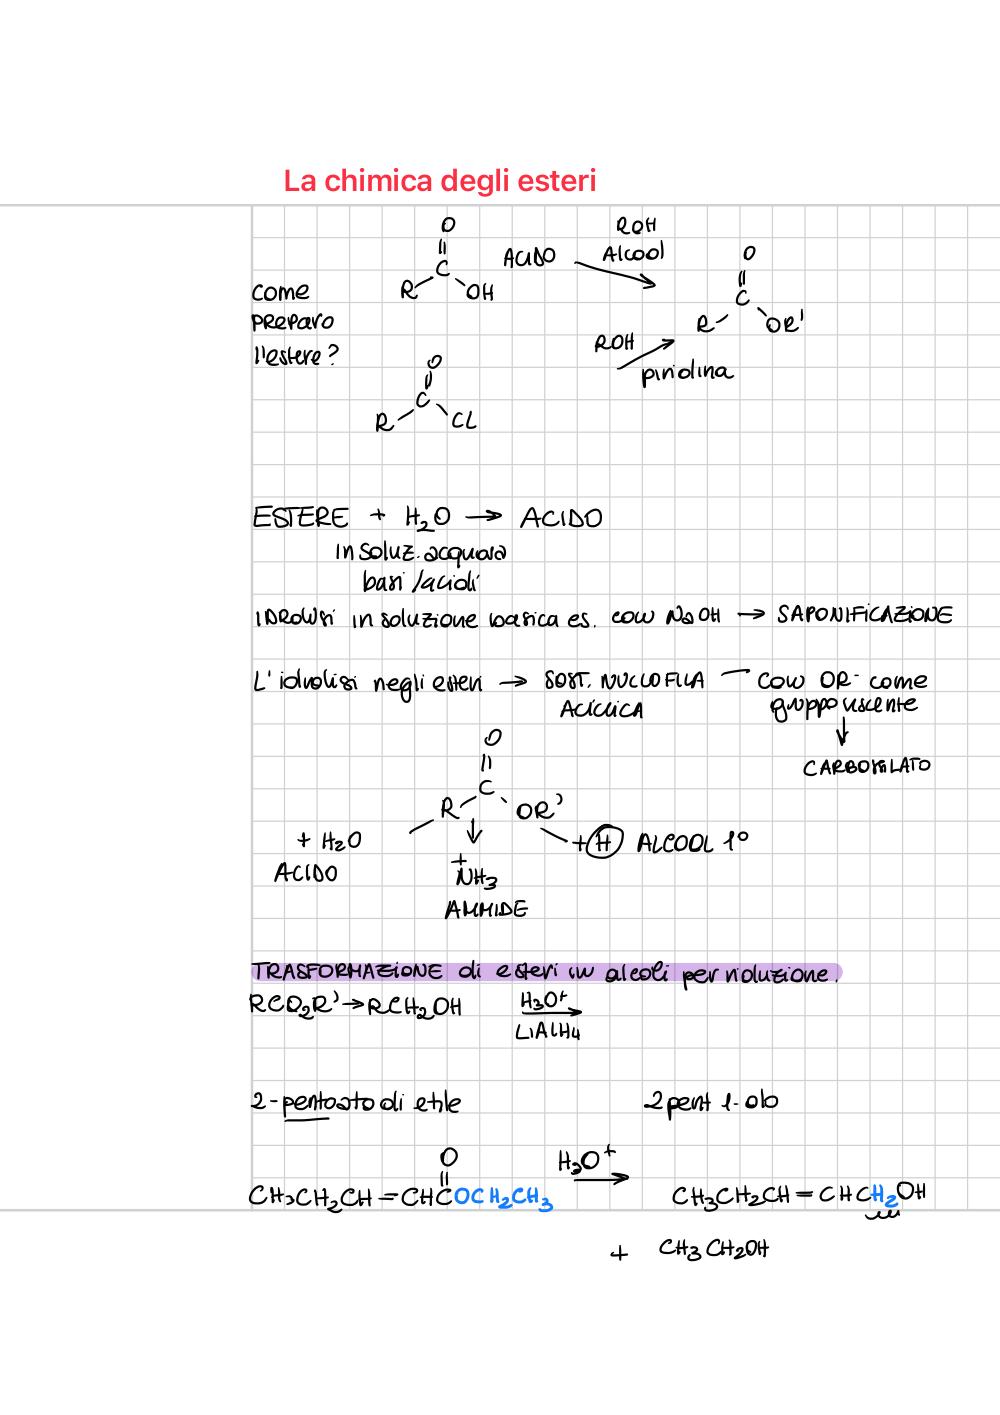 La chimica degli esteri
O
||
R C OH ACIDO
ROH
Alcool
O
||
C
R OR'
come
preparo
l'estere?
ROH
piridina
O
||
C
R CL
ESTERE + H2O → ACIDO
in soluz. acquosa
basi / acidi
IDROLISI in soluzione basica es. con NaOH → SAPONIFICAZIONE
L'idrolisi negli esteri → SOST. NUCLOFILA — con OR- come
ACILICA gruppo uscente
↓
CARBOSSILATO
O
||
C
R OR'
+ H2O ↓ + H ALCOOL 1°
ACIDO + NH3
AMMIDE
TRASFORMAZIONE di esteri in alcoli per riduzione.
RCO2R' → RCH2OH H3O+ →
LiAlH4
2-pentoato di etile 2 pent 1-olo
O
||
CH3CH2CH=CHCOCH2CH3 H3O+ → CH3CH2CH=CHCH2OH
+ CH3CH2OH